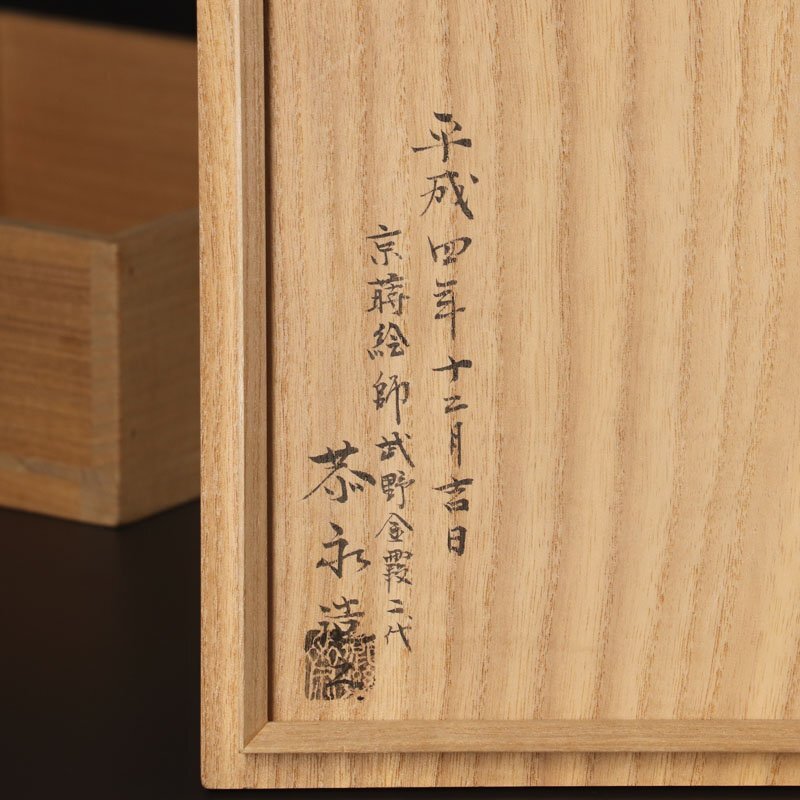 平成四年十二月吉日
京蒔絵師武野金霞二代
恭永造之